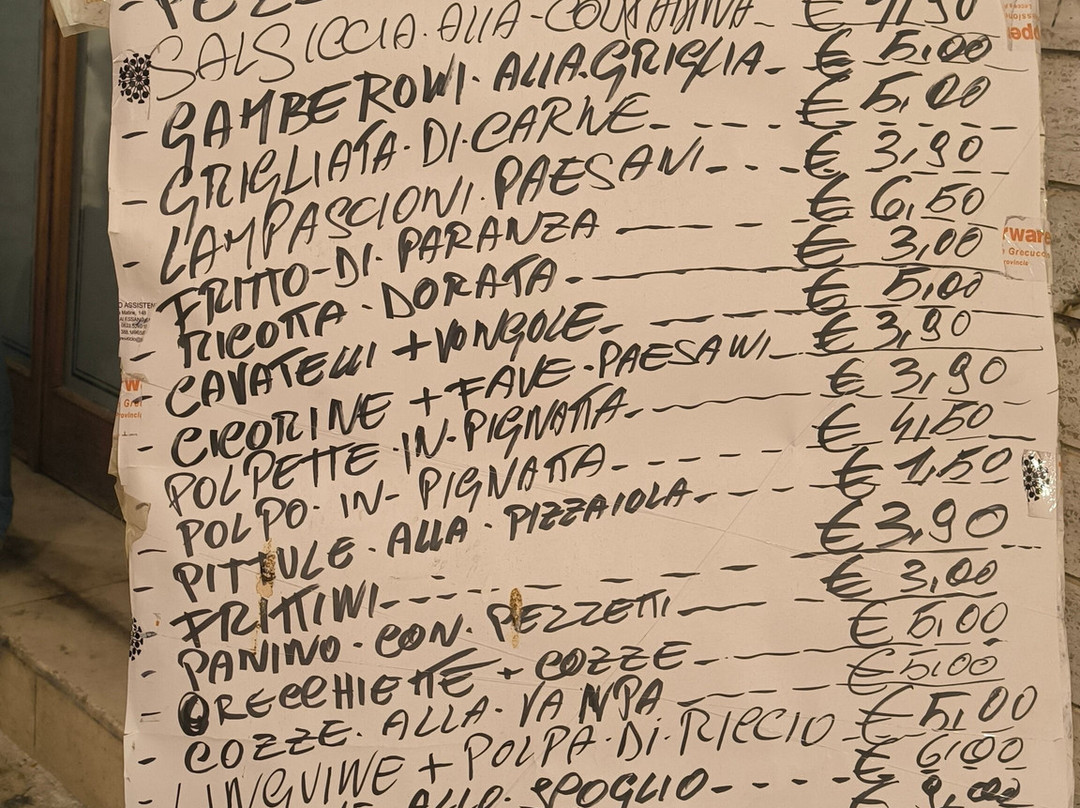 - SALSICCIA. ALLA-CONTADINA- € 4,50
- GAMBERONI. ALLA.GRIGLIA- € 5,00
- GRIGLIATA.DI.CARNE- - - - € 5,00
- LAMPASCIONI. PAESANI- - - € 3,90
- FRITTO-DI. PARANZA - - - € 6,50
- RICOTTA. DORATA- € 3,00
- CAVATELLI +VONGOLE- - € 5,00
- CICORINE + FAVE.PAESANI- € 3,90
- POLPETTE.IN.PIGNATTA- € 3,90
- POLPO. IN- PIGNATTA- - - € 4,50
- PITTULE. ALLA. PIZZAIOLA- - - € 1,50
- FRITTINI- - - - € 3,90
- PANINO. CON. PEZZETTI- € 3,00
- ORECCHIETTE + COZZE- € 5,00
- COZZE. ALLA. VAMPA - € 5,00
- LINGUINE + POLPA.DI.RICCIO € 5,00
ALLO. SPOGLIO- - - € 6,00